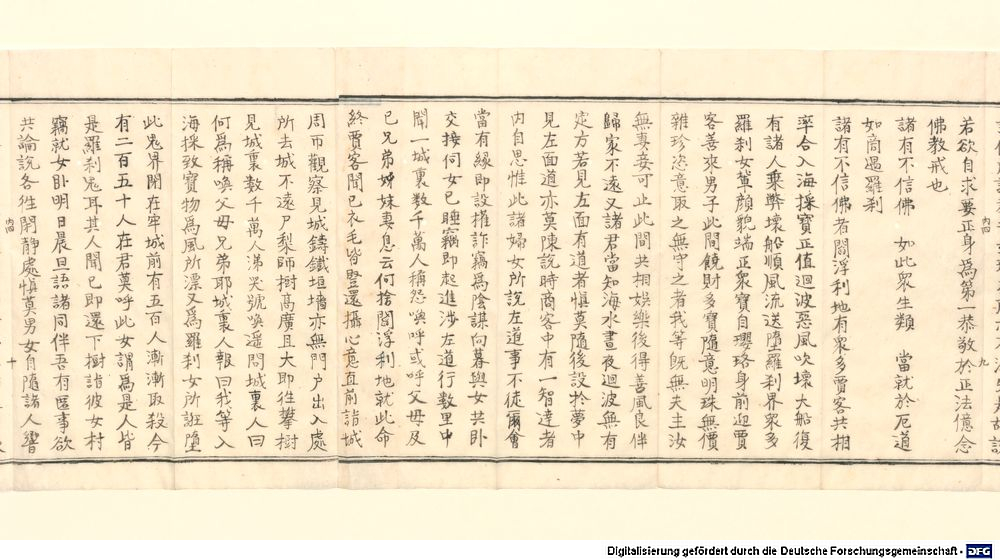 若欲自求要正身為第一恭敬於正法億念
佛教戒也
諸有不信佛 如此衆生類 當就於厄道
如商遇羅刹
諸有不信佛者閻浮利地有衆多賈客共相
率合入海採寶正值迴波惡風吹壞大船復
有諸人乗弊壞船順風流送墮羅刹界衆多
羅刹女輩顔貌端正衆寶自瓔珞身前迎賈
客善來男子此間饒財多寶隨意明珠無價
雜珍恣意取之無守之者我等既無夫主汝
無妻妾可止此間共相娯樂後得善風良伴
歸家不遠又諸君當知海水晝夜迴波無有
定方若見左面有道者慎莫隨後設於夢中
見左面道亦莫陳說時商客中有一智達者
内自思惟此諸婦女所說左道事不徒爾會
當有縁即設權詐竊為陰謀向暮與女共卧
交接伺女已睡竊即起進渉左道行數里中
聞一城裏數千萬人稱怨喚呼或呼父母及
已兄弟姊妹妻息云何捨閻浮利地就此命
終賈客聞已衣毛皆竪還攝心意直前詣城
周帀觀察見城鑄鐵垣墻亦無門户出入處
所去城不遠尸梨師樹髙廣且大即徃攀樹
見城裏數千萬人涕哭號喚遥問城裏人曰
何為稱喚父母兄弟耶城裏人報曰我等入
海採致寶物為風所漂又為羅刹女所誑墮
此鬼界閉在牢城前有五百人漸漸取殺今
有二百五十人在君莫呼此女謂為是人皆
是羅刹鬼耳其人聞已即還下樹詣彼女村
竊就女卧明日晨旦語諸同伴吾有匿事欲
共論說各徃閑静處慎莫男女自隨諸人響
内四
九
内四
十
Digitalisierung gefördert durch die Deutsche Forschungsgemeinschaft - DFG